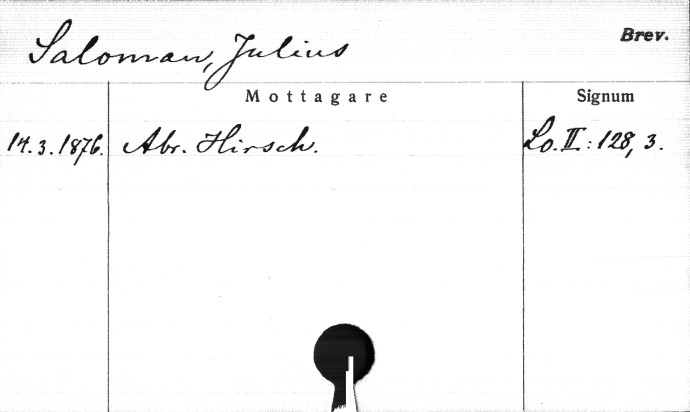 Saloman, Julius
Brev.
Mottagare
Signum
14.3.1876. Abr. Hirsch. Lo. II: 128, 3.